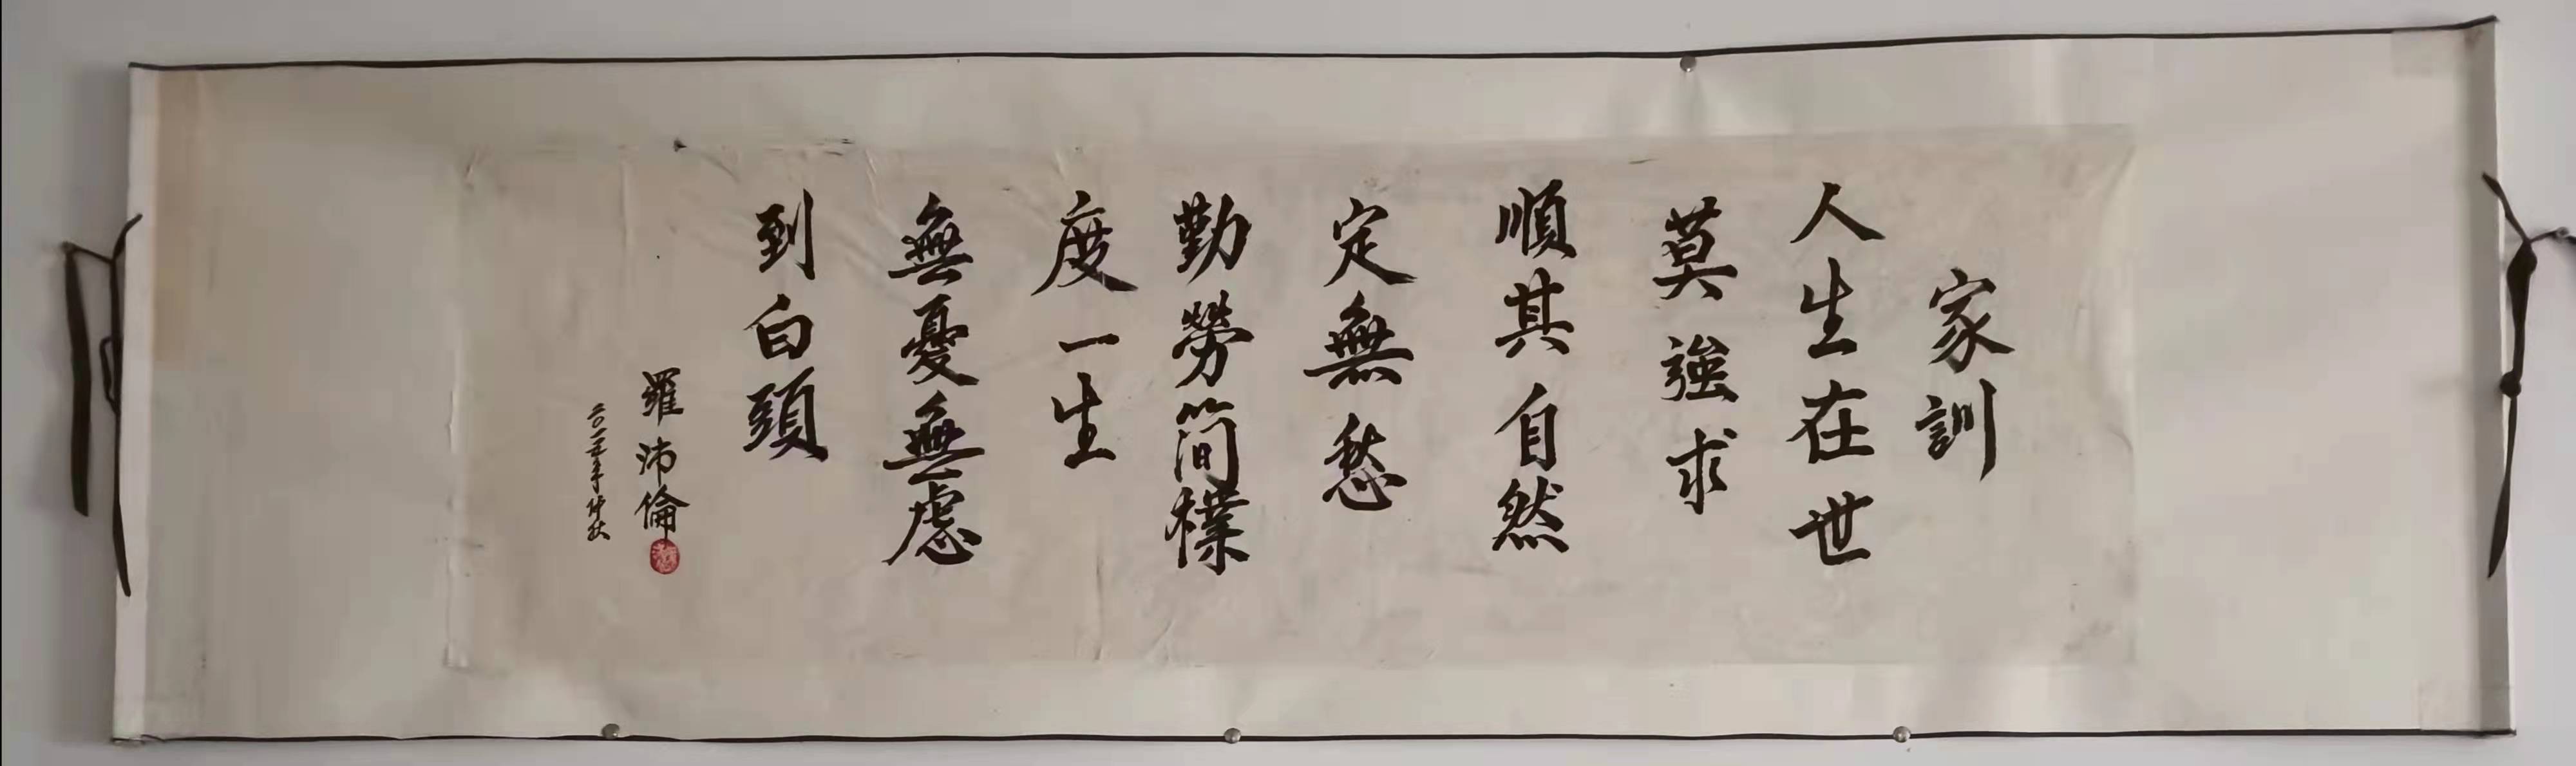 家訓
人生在世
莫強求
順其自然
定無愁
勤勞簡樸
度一生
無憂無慮
到白頭
羅沛倫